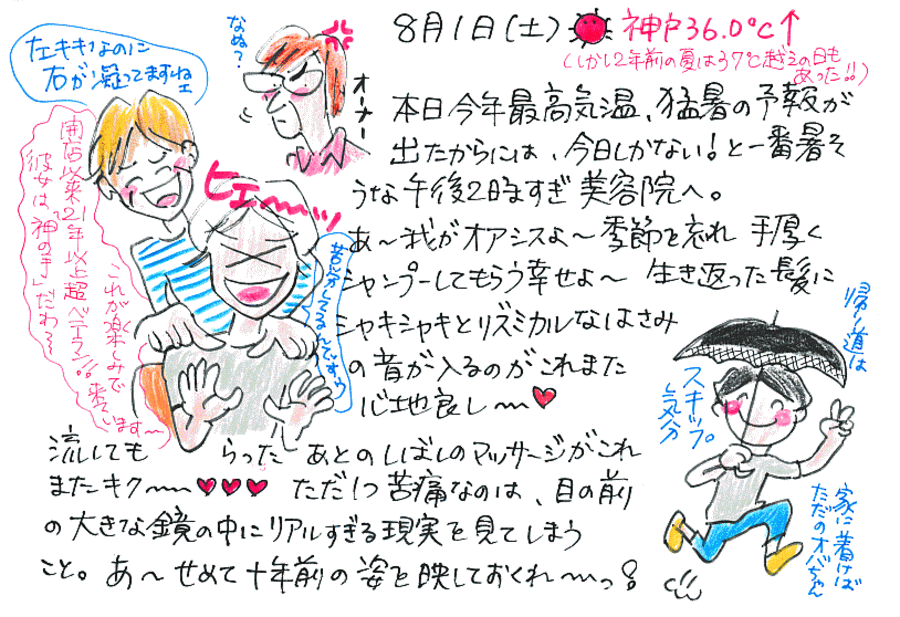 8月1日(土) 神戸36.0℃↑
(しかし2年前の夏は37℃越えの日も
あった!!)
なぬ?
オーナー
左キキなのに
右が凝ってますねェ
ヒェ〜〜ッ
開店以来21年以上超ベテラン!!
彼女は「神の手」だわ〜〜
これが楽しみで
来ています〜
本日今年最高気温、猛暑の予報が
出たからには、今日しかない!と一番暑そ
うな午後2時すぎ美容院へ。
あ〜我がオアシスよ〜季節を忘れ 手厚く
シャンプーしてもらう幸せよ〜 生き返った髪に
シャキシャキとリズミカルなはさみ
の音が入るのがこれまた
心地良し〜〜♥
流してもらったあとのしばしのマッサージがこれ
またキク〜〜♥♥♥ ただ1つ苦痛なのは、目の前
の大きな鏡の中にリアルすぎる現実を見てしまう
こと。あ〜せめて十年前の姿を映しておくれ〜〜っ!
帰り道は
スキップ
気分
家に着けば
ただのオバちゃん